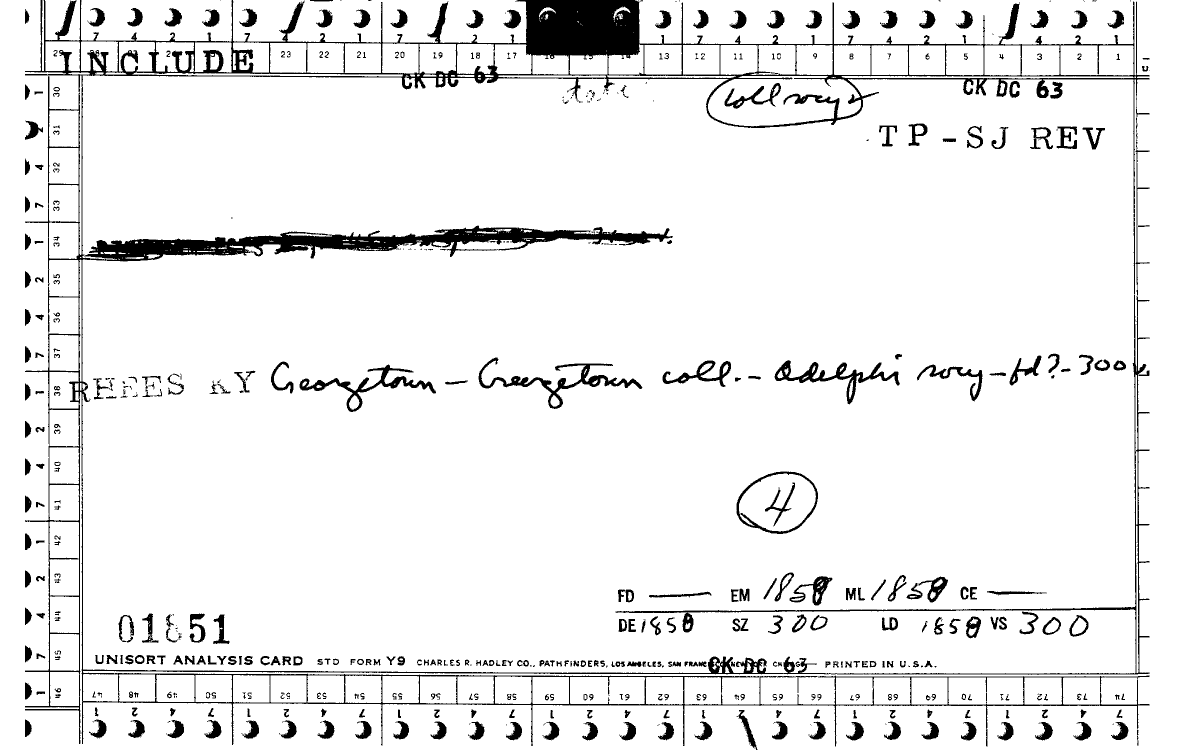 7 4 2 1 7 4 2 1 7 4 2 1 1 7 4 2 1 7 4 2 1 7 4 2 1
29 23 22 21 20 19 18 17 16 15 14 13 12 11 10 9 8 7 6 5 4 3 2 1
INCLUDE
CK DC 63
date
coll socy
CK DC 63
TP-SJ REV
RHEES KY Georgetown — Georgetown coll. — Adelphi socy — fd? - 300 v
4
FD — EM 1858 ML 1858 CE —
DE 1858 SZ 300 LD 1858 VS 300
01851
UNISORT ANALYSIS CARD STD FORM Y9 CHARLES R. HADLEY CO., PATHFINDERS, LOS ANGELES, SAN FRANCISCO, NEW YORK, CHICAGO PRINTED IN U.S.A.
CK DC 63
30 31 32 33 34 35 36 37 38 39 40 41 42 43 44 45 46
47 48 49 50 51 52 53 54 55 56 57 58 59 60 61 62 63 64 65 66 67 68 69 70 71 72 73 74
1 2 4 7 1 2 4 7 1 2 4 7 1 2 4 7 1 2 4 7 1 2 4 7 1 2 4 7